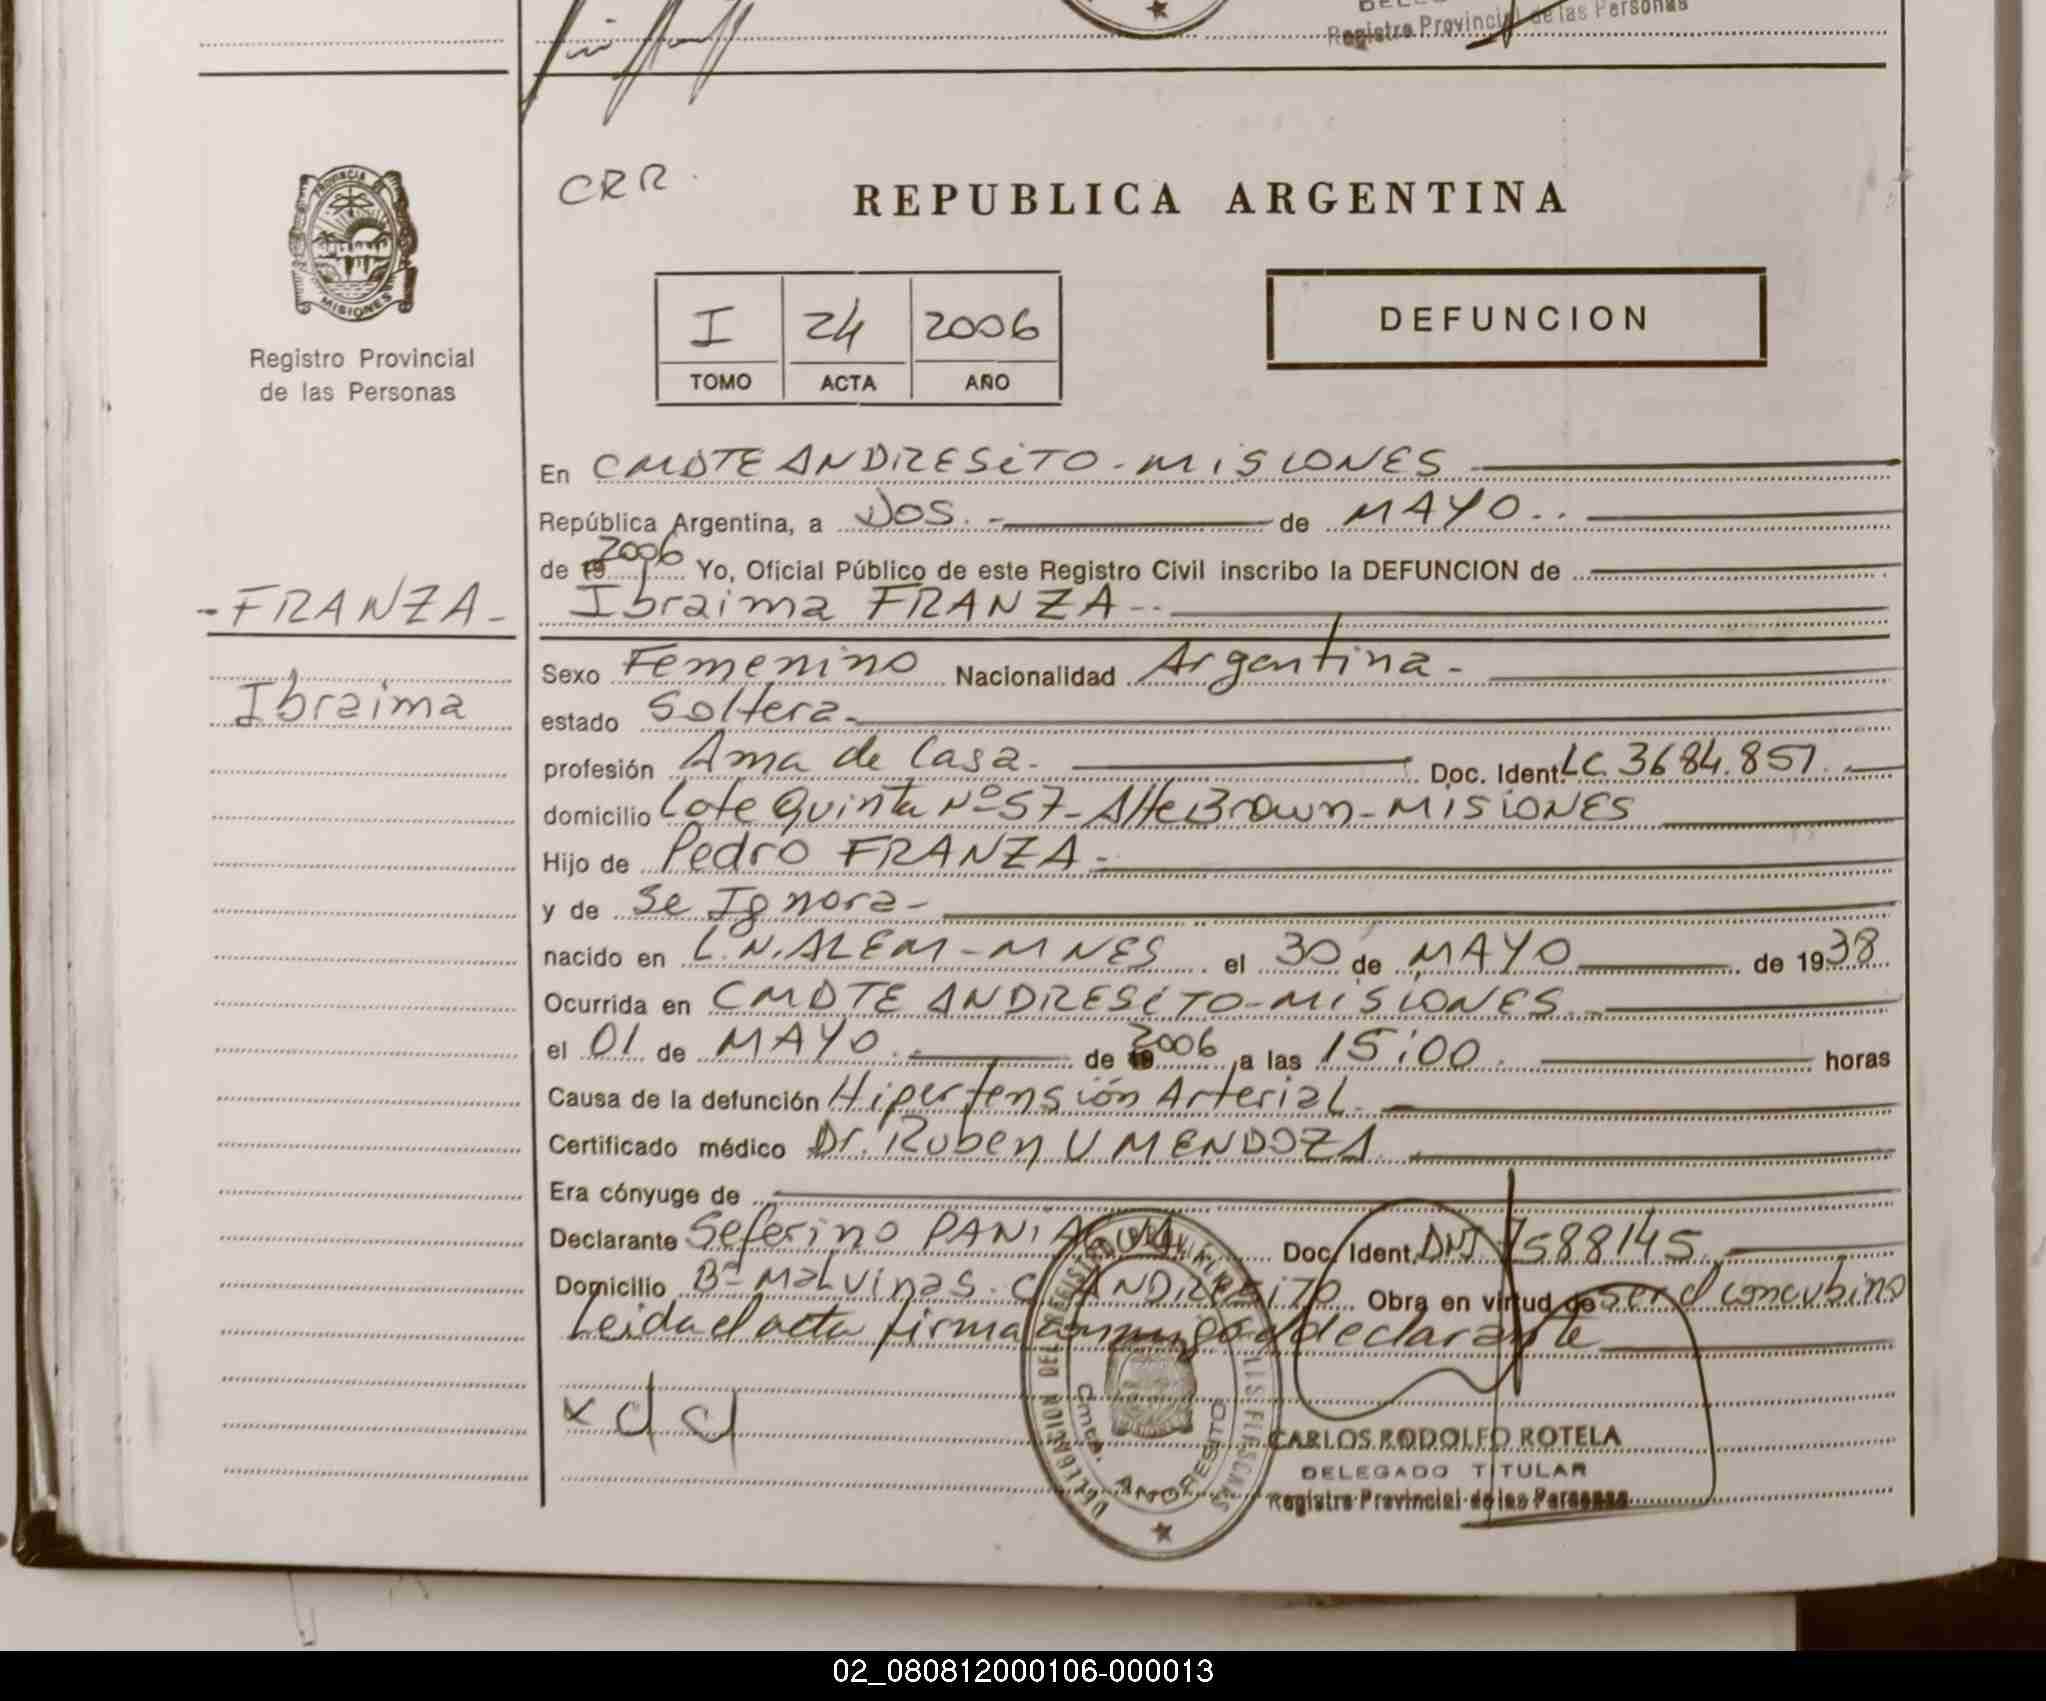 Registro Provincial de las Personas
PROVINCIA DE
MISIONES
Registro Provincial
de las Personas
CRR.
REPUBLICA ARGENTINA
I 24 2006
TOMO ACTA AÑO
DEFUNCION
En CMDTE ANDRESITO - MISIONES
República Argentina, a DOS.- de MAYO..
de 19 2006 Yo, Oficial Público de este Registro Civil inscribo la DEFUNCION de
- FRANZA -
Ibraima FRANZA --
Ibraima
Sexo Femenino Nacionalidad Argentina -
estado Soltera -
profesión Ama de Casa - Doc. Ident. LC 3684.851.
domicilio Lote Quinta Nº 57 - Alte Brown - MISIONES
Hijo de Pedro FRANZA -
y de Se Ignora -
nacido en L.N. ALEM - MNES el 30 de MAYO de 1938
Ocurrida en CMDTE ANDRESITO - MISIONES
el 01 de MAYO. de 19 2006 a las 15:00. horas
Causa de la defunción Hipertensión Arterial.
Certificado médico Dr. Ruben U MENDOZA
Era cónyuge de
Declarante Seferino PANIAGUA Doc. Ident. DNI 7588145
Domicilio Bº Malvinas. C. ANDRESITO Obra en virtud de ser el concubino
Leida el acta firma conmigo el declarante
CARLOS RODOLFO ROTELA
DELEGADO TITULAR
Registro Provincial de las Personas
Cmte. ANDRESITO
02_080812000106-000013